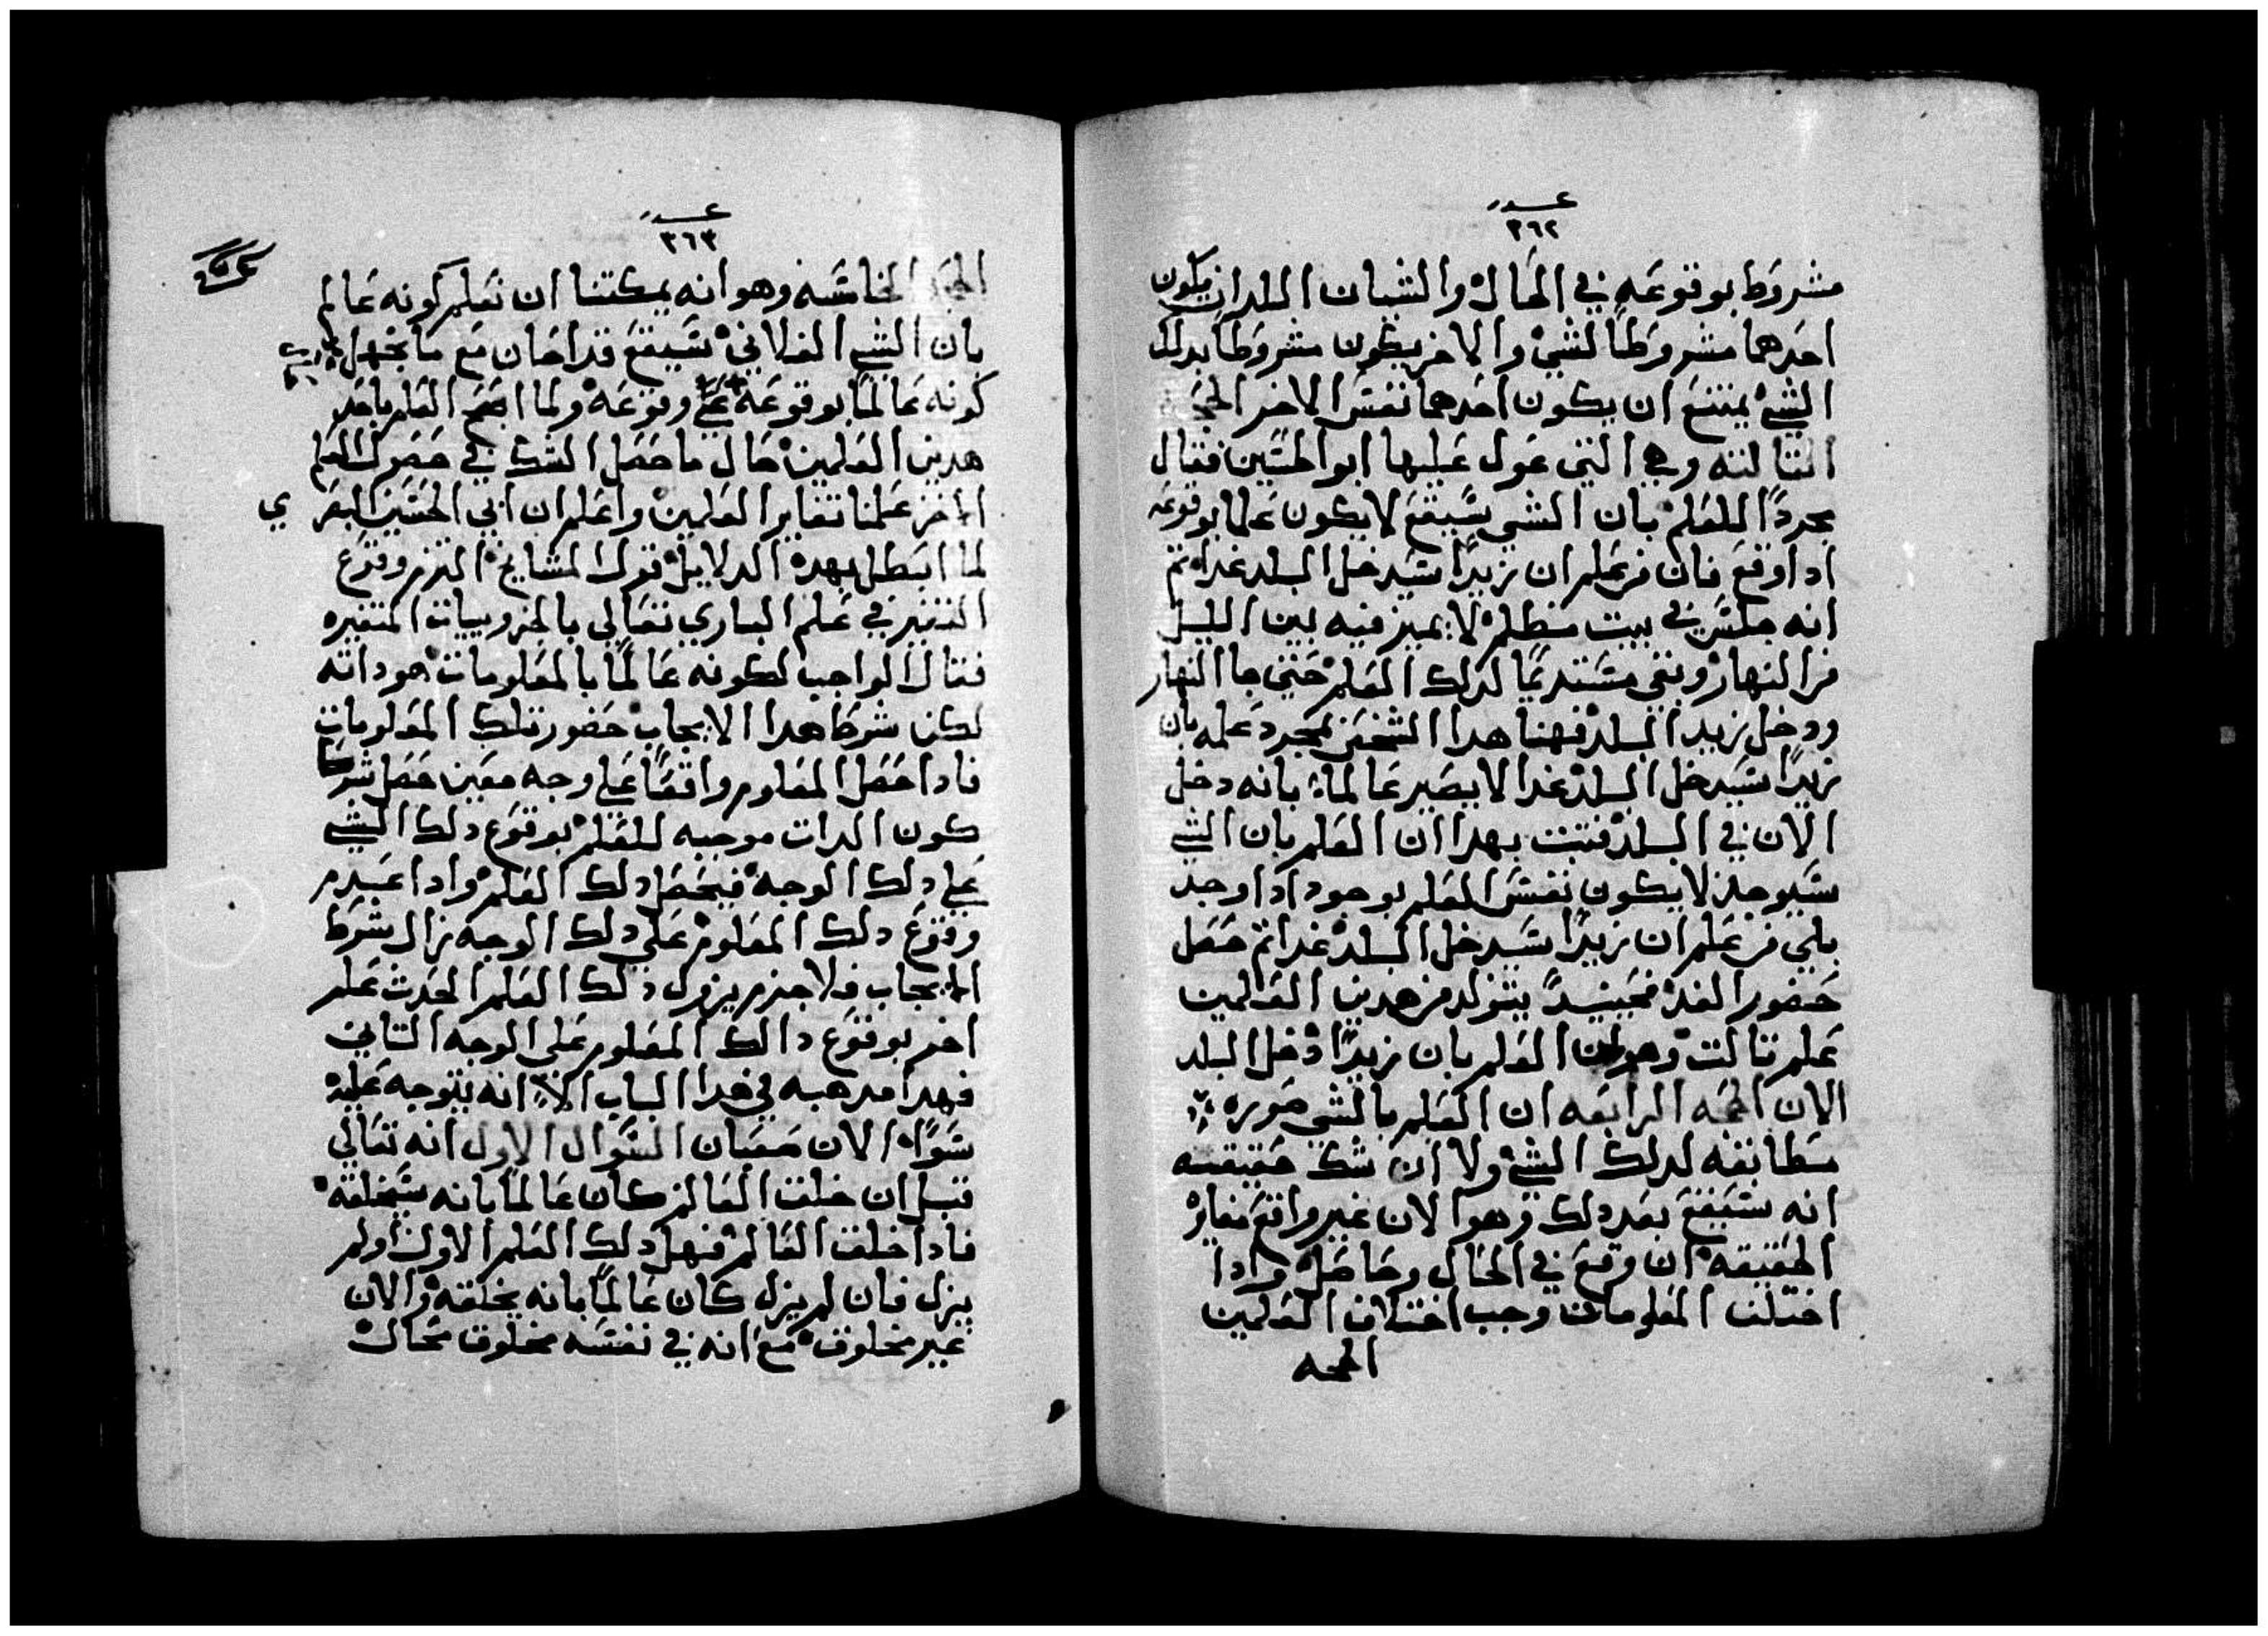 عدد
٣٦٢
مشروط بوقوعه في الحال والشيان اللدان يكون
احدهما مشروطا لشي والاخر يكون مشروطا بدلك
الشي يمتنع ان يكون احدهما نفس الاخر الحجه
التالته وهي التي عول عليها ابو الحسين فقال
مجردا للعلم بان الشي سيقع لا يكون علما بوقوعه
ادا وقع فان من علم ان زيدا سيدخل البلد غدا تم
انه جلس في بيت مظلم لا يميز فيه بين الليل
من النهار وبقي مستديما لدلك العلم حتي جا النهار
ودخل زيد البلد فهنا هدا الشخص بمجرد علمه بان
زيدا سيدخل البلد غدا لا يصير عالما بانه دخل
الان في البلد فتبت بهدا ان العلم بان الشي
سيوجد لا يكون نفس العلم بوجود ادا وجد
بلي من علم ان زيدا سيدخل البلد غدا تم حصل
حضور الغد فحينيد يتولد من هدين العلمين
علم تالت وهو ان العلم بان زيدا دخل البلد
الان الحجه الرابعه ان العلم بالشي صوره
مطابقه لدلك الشي ولا ان شك حقيقته
انه سيقع بعد دلك وهو الان غير واقع مغاير
الحقيقه ان وقع في الحال وحاصل وادا
اختلف المعلومات وجب اختلاف العلمين
الحجه
عدد
٣٦٣
الحجه الخامسه وهو انه يمكننا ان نعلم كونه عالم
بان الشي الفلاني سيقع قدا حان مع ما نجهل
كونه عالما بوقوعه وقوعه ولما اجتمع العلم باحد
هدين العلمين حال ما حصل الشك في حصول العلم
الاخر علمنا تغاير العلمين واعلم ان ابي الحسين البصري
لما ابطل بهده الدلايل قول المشايخ التزم وقوع
التغير في علم الباري تعالي بالجزوييات المتغيره
فقال الواجب لكونه عالما بالمعلومات هو داته
لكن شرط هدا الايجاب حضور تلك المعلومات
فادا حصل المعلوم واقعا علي وجه معين حصل شرط
كون الدات موجبه للعلم بوقوع دلك الشي
علي دلك الوجه فيحصل دلك العلم وادا عدم
وقوع دلك المعلوم علي دلك الوجه زال شرط
الايجاب فلا جرم يزول دلك العلم الحدت علم
اخر بوقوع دالك المعلوم علي الوجه التاني
فهدا مدهبه في هدا الباب الا انه يتوجه عليه
سوالان صعبان السوال الاول انه تعالي
قبل ان خلق العالم كان عالما بانه سيخلقه
فادا خلق العالم فهل دلك العلم الاول اولم
يزل فان لم يزل كان عالما بانه يخلقه والان
غير مخلوق مع انه في نفسه مخلوق محال